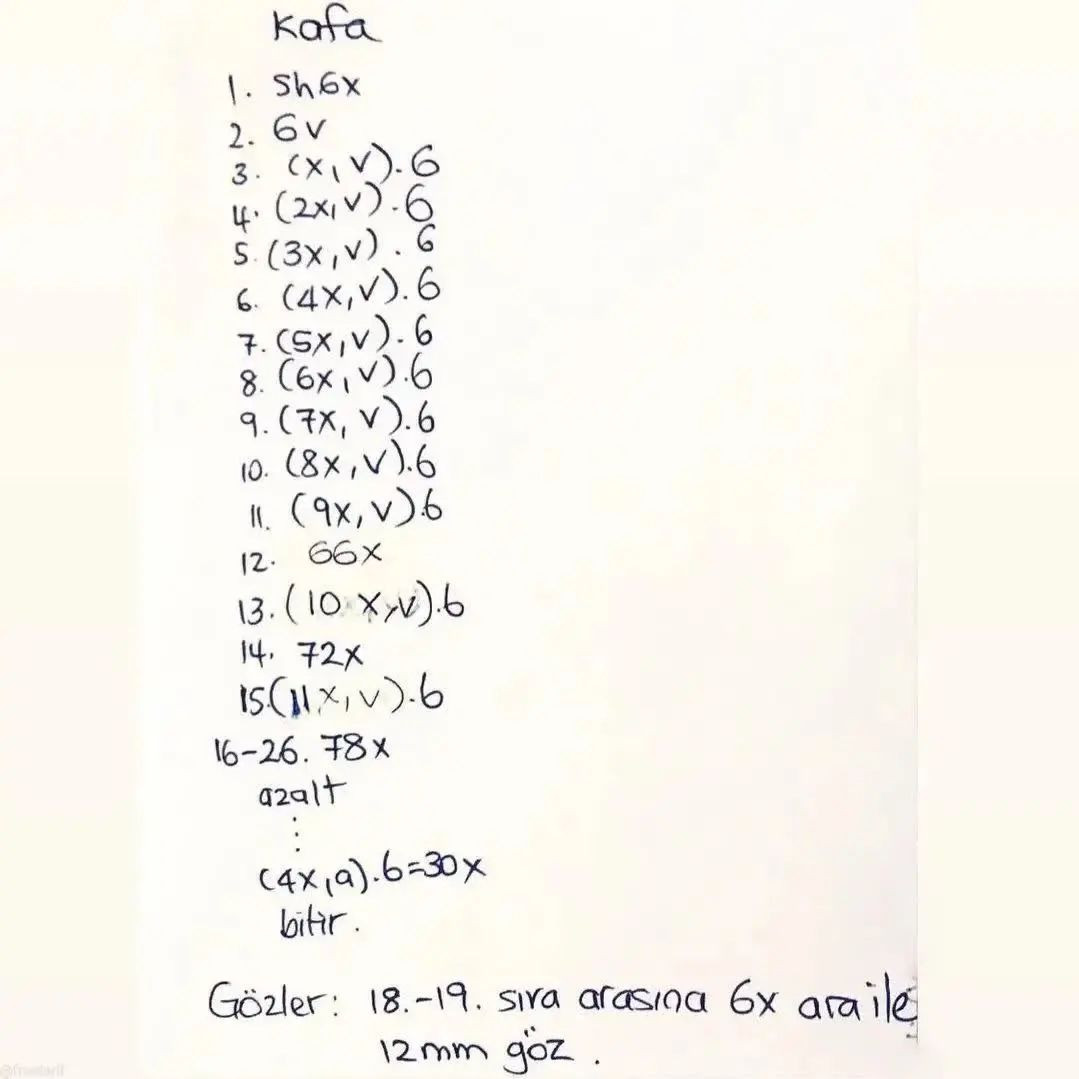 Kafa
1. Sh6x
2. 6v
3. (x,v).6
4. (2x,v).6
5. (3x,v).6
6. (4x,v).6
7. (5x,v).6
8. (6x,v).6
9. (7x,v).6
10. (8x,v).6
11. (9x,v).6
12. 66x
13. (10x,v).6
14. 72x
15. (11x,v).6
16-26. 78x
azalt
⋮
(4x,a).6=30x
bitir.
Gözler: 18.-19. sıra arasına 6x ara ile
12mm göz.